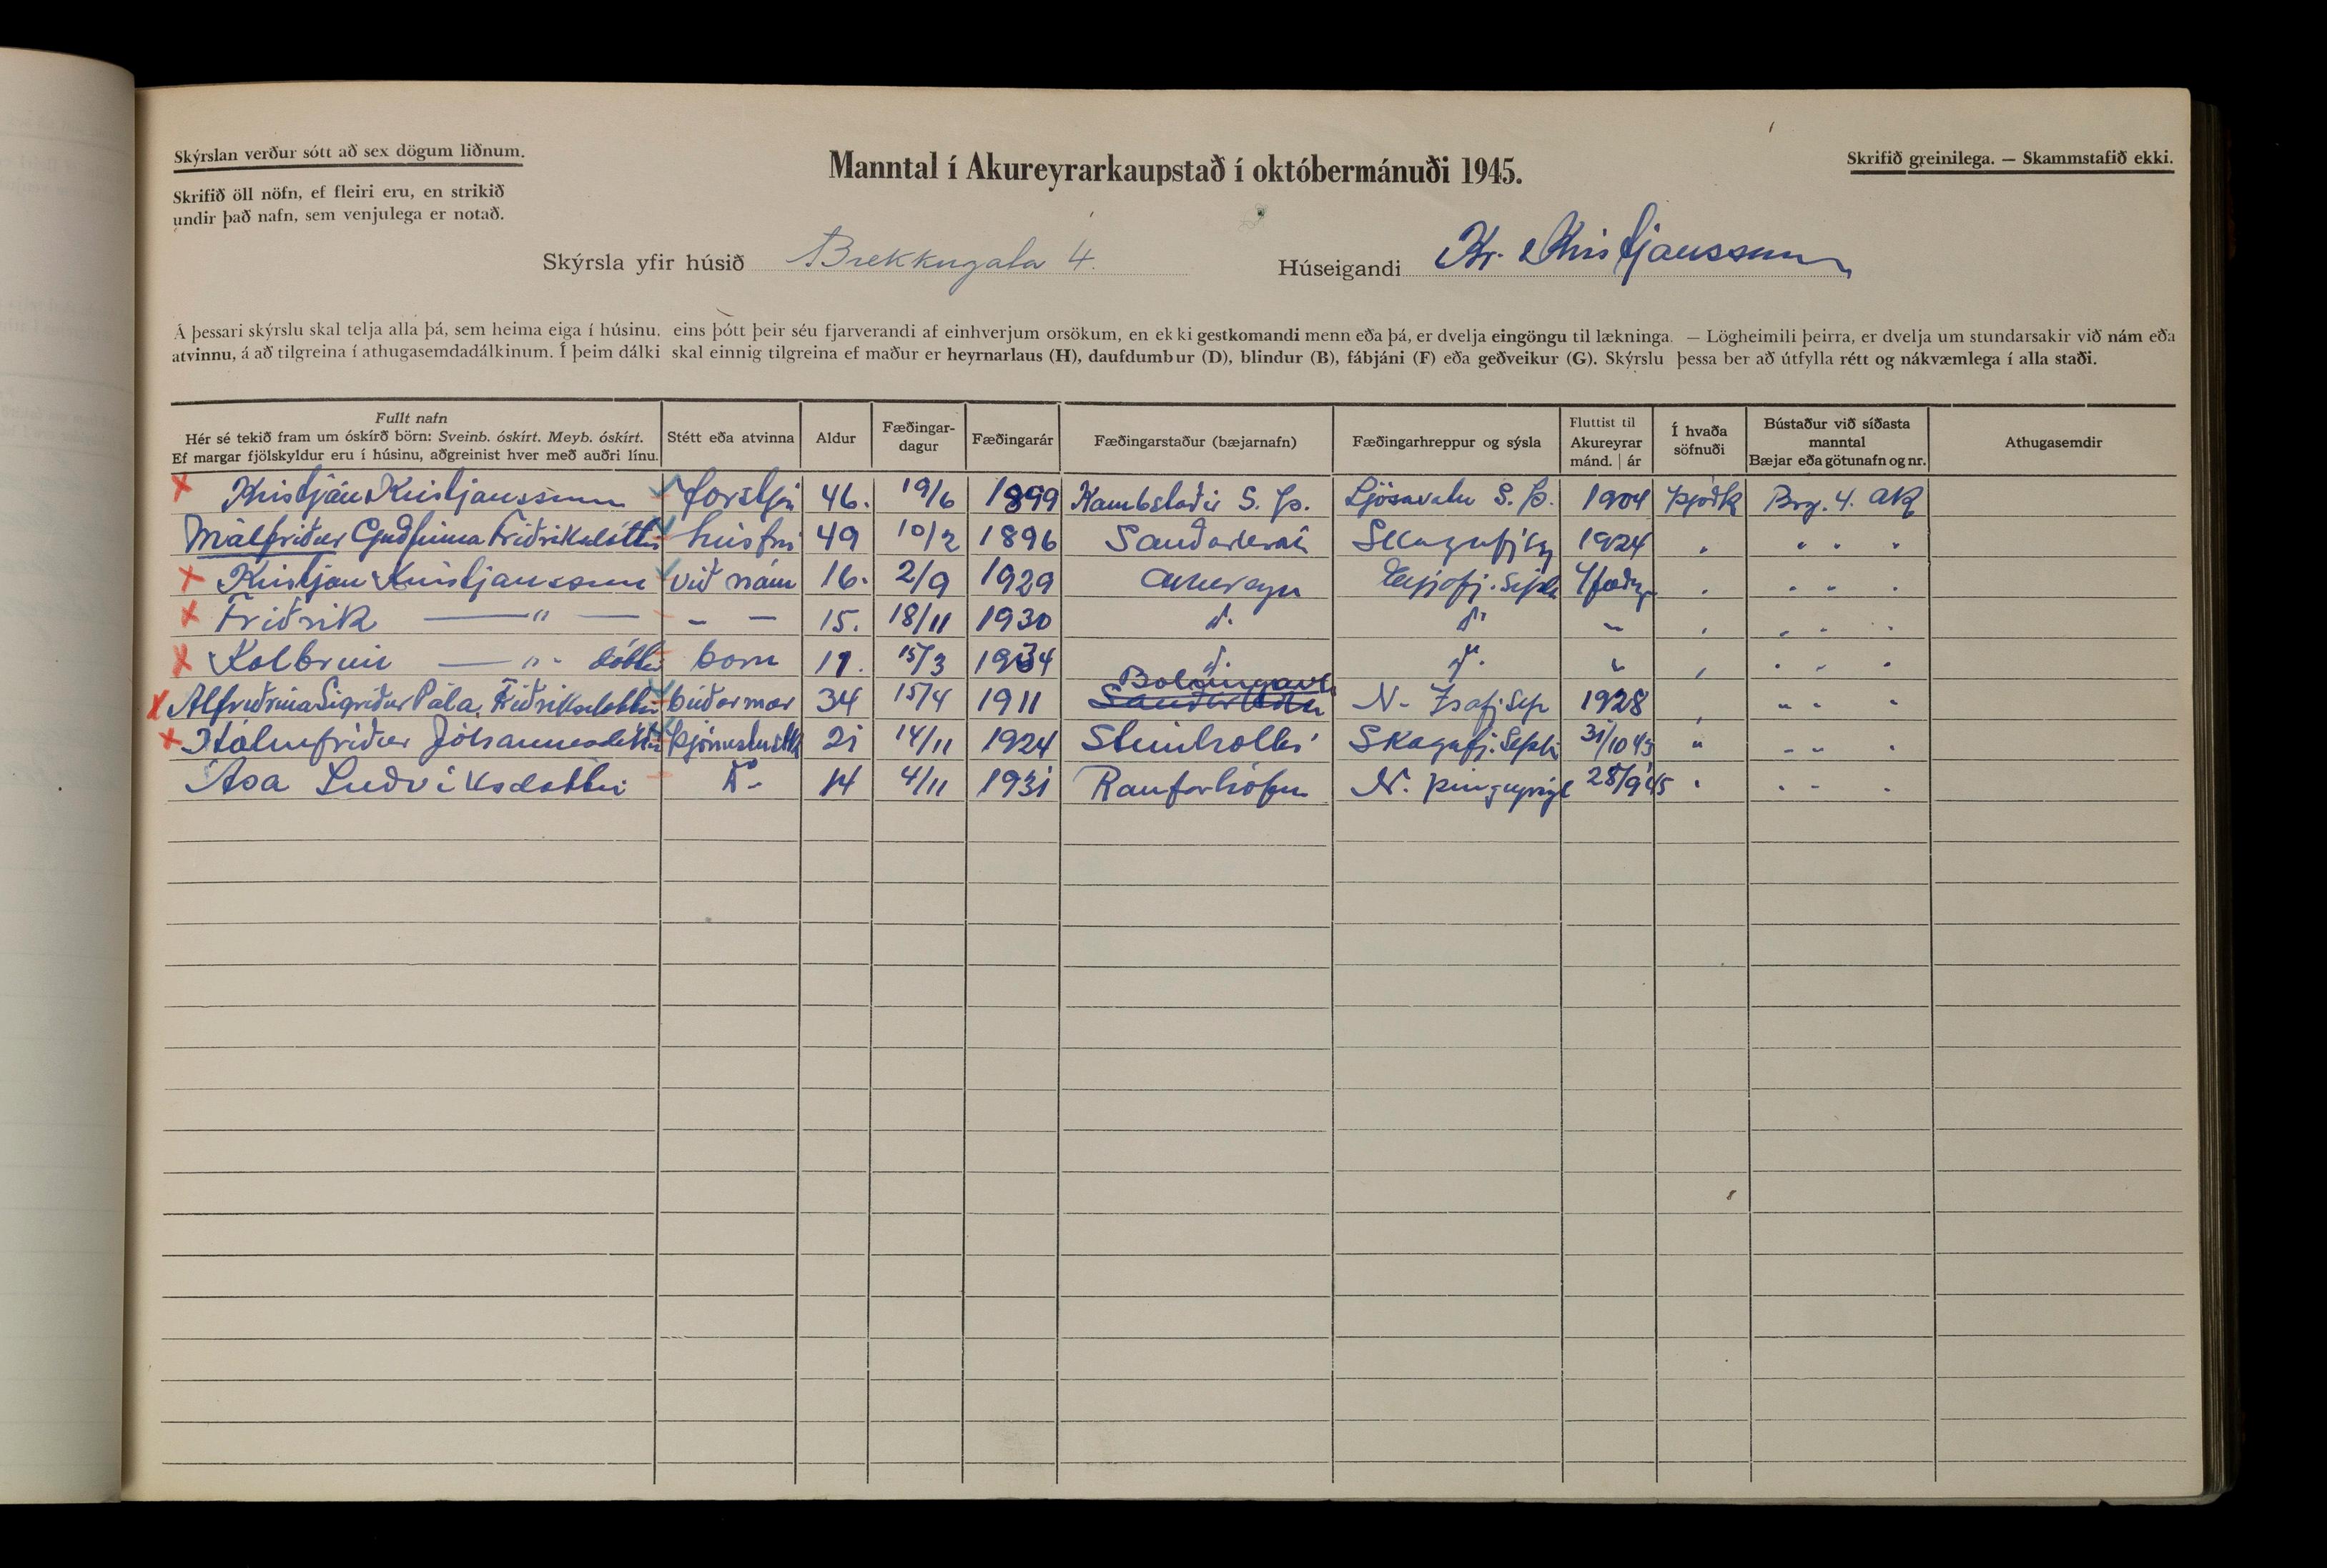 Skýrslan verður sótt að sex dögum liðnum.
Skrifið öll nöfn, ef fleiri eru, en strikið
undir það nafn, sem venjulega er notað.
Manntal í Akureyrarkaupstað í októbermánuði 1945.
Skrifið greinilega. — Skammstafið ekki.
Skýrsla yfir húsið Brekkugata 4.
Húseigandi Kr. Kristjansson
Á þessari skýrslu skal telja alla þá, sem heima eiga í húsinu, eins þótt þeir séu fjarverandi af einhverjum orsökum, en ekki gestkomandi menn eða þá, er dvelja eingöngu til lækninga. — Lögheimili þeirra, er dvelja um stundarsakir við nám eða
atvinnu, á að tilgreina í athugasemdadálkinum. Í þeim dálki skal einnig tilgreina ef maður er heyrnarlaus (H), daufdumbur (D), blindur (B), fábjáni (F) eða geðveikur (G). Skýrslu þessa ber að útfylla rétt og nákvæmlega í alla staði.
Fullt nafn
Hér sé tekið fram um óskírð börn: Sveinb. óskírt. Meyb. óskírt.
Ef margar fjölskyldur eru í húsinu, aðgreinist hver með auðri línu.
Stétt eða atvinna
Aldur
Fæðingar-
dagur
Fæðingarár
Fæðingarstaður (bæjarnafn)
Fæðingarhreppur og sýsla
Fluttist til
Akureyrar
mánd. | ár
Í hvaða
söfnuði
Bústaður við síðasta
manntal
Bæjar eða götunafn og nr.
Athugasemdir
Kristján Kristjansson forstjri 46. 19/6 1899 Kambstaðir S. Þ. Ljósavatn S. Þ. 1904 Þjóðk Brg. 4. AK
Málfriður Guðfinna Friðriksdóttir húsfrú 49 10/2 1896 Sauðárkrók 1924 " " " "
Kristjan Kristjansson við nám 16. 2/9 1929 Akureyri Eyjafj. Sýslu " " " "
Friðrik — " — - - 15. 18/11 1930 do do " " " " "
Kolbrún — " - dóttir barn 11. 15/3 1934 do do " " " " "
Alfreðrina Sigriður Pala Friðriksdottir búðarmær 34 15/4 1911 Bolungavík N- Isafj. Sýs 1928 " " " "
Hólmfriður Jóhannesdóttir þjónustustlk 21 14/11 1924 Steinholti Skagafj. Sýslu 31/10 43 " " " "
Ása Luðviksdottir do- 14 4/11 1931 Raufarhöfn N. Þingeyrsýsl 28/9 45 " " " "